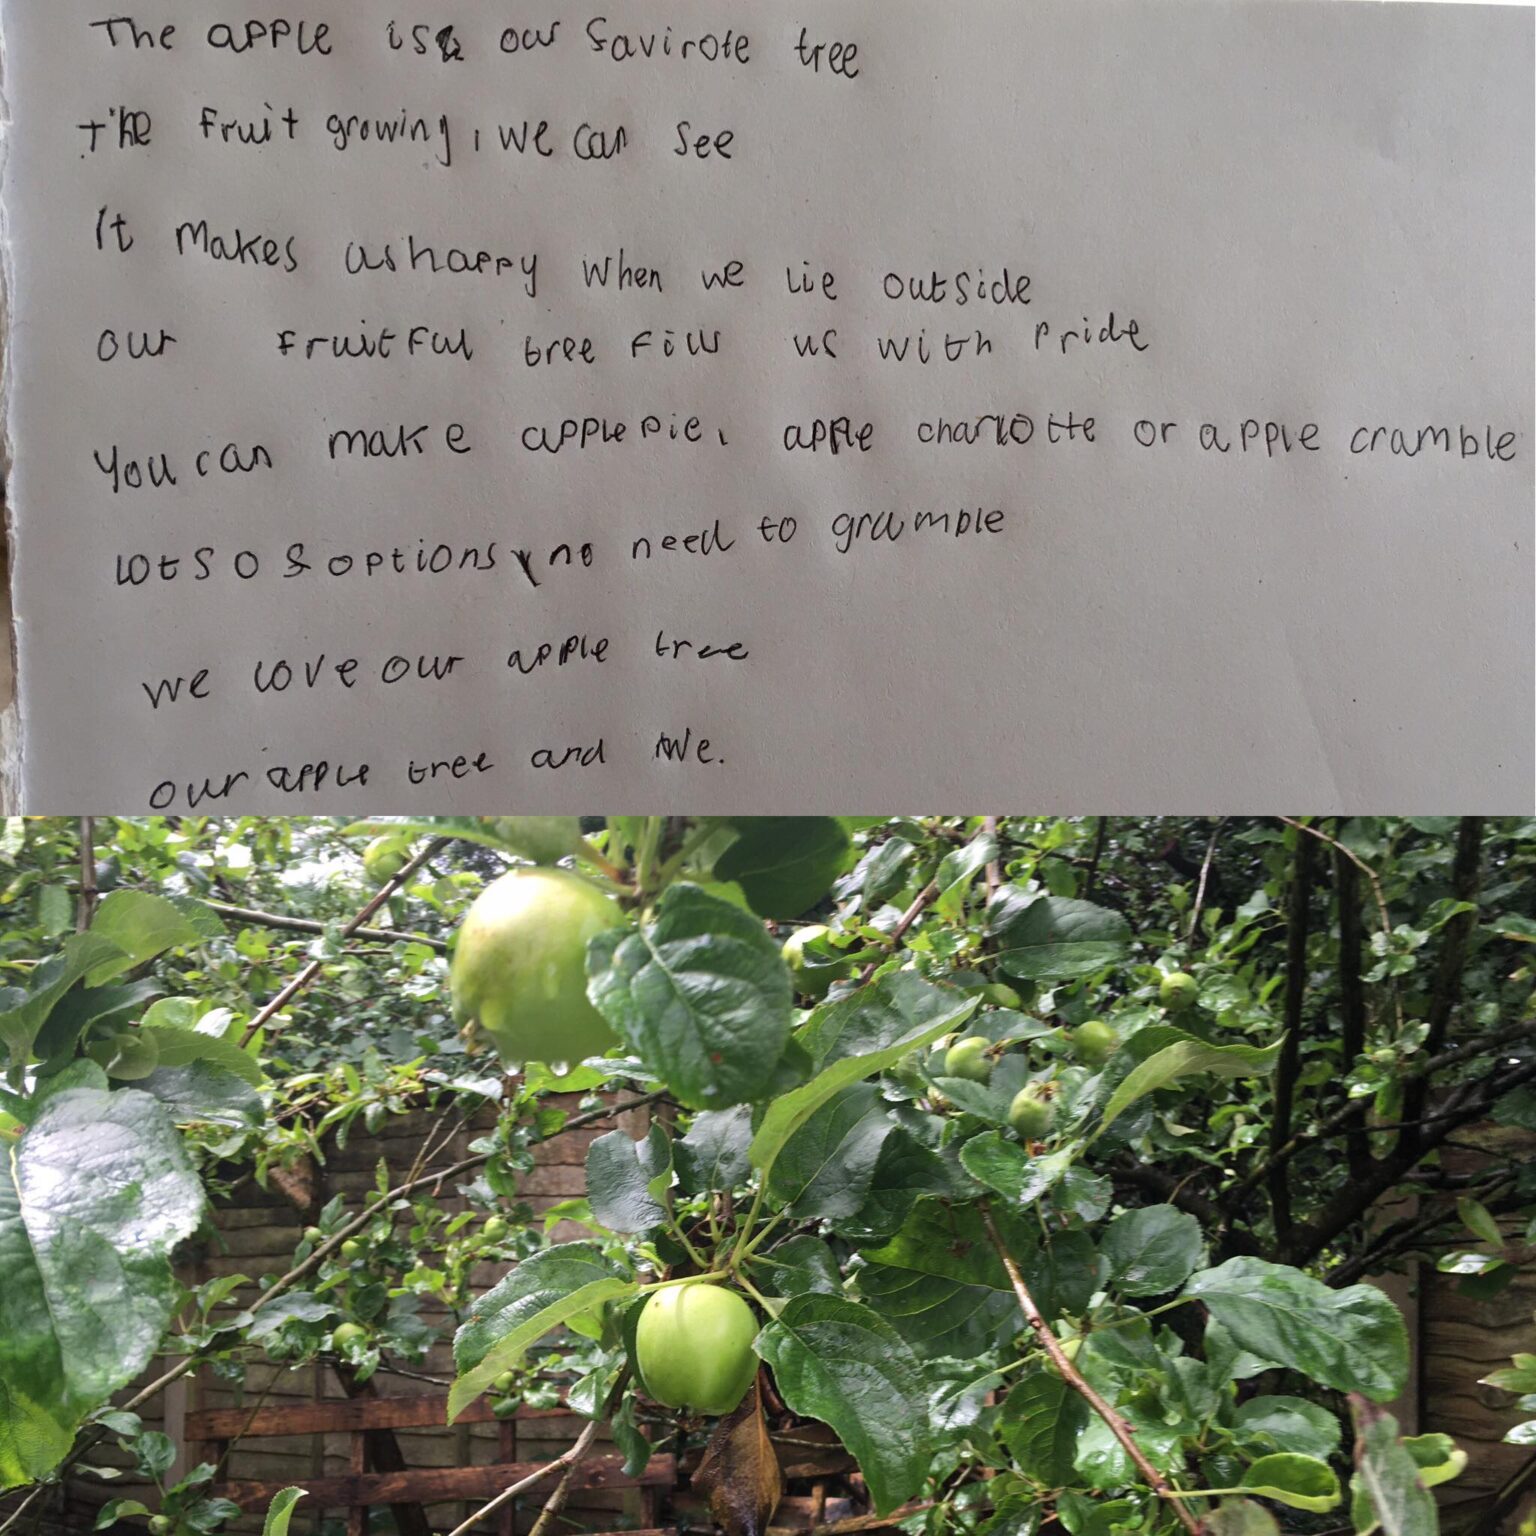 The apple is our favirote tree
The fruit growing, we can see
It makes us happy when we lie outside
our fruitful tree fills us with pride
You can make apple pie, apple charlotte or apple crumble
lots of options, no need to grumble
we love our apple tree
our apple tree and we.